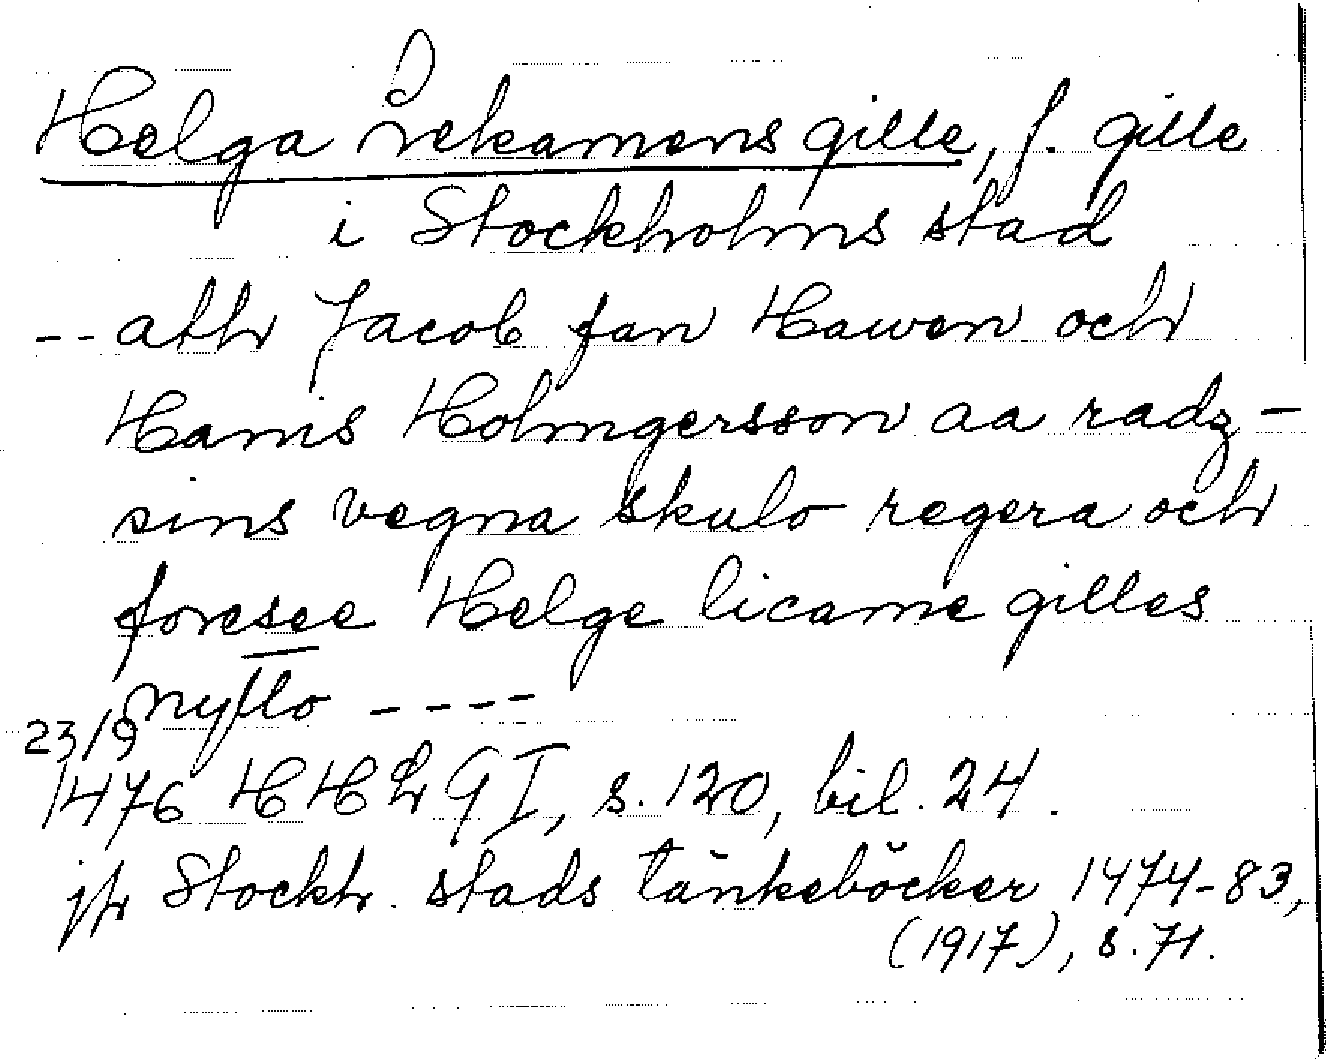 Helga Lekamens gille, f. gille
i Stockholms stad
-- ath Jacob fan Hawen och
Hanis Holmgersson aa radz-
sins vegna skulo regera och
foresee Helge licame gilles
nytto ----
23/9
1476 HHL 9 I, s. 120, bil. 24.
jfr Stockh. stads tänkeböcker 1474-83,
(1917), s. 71.